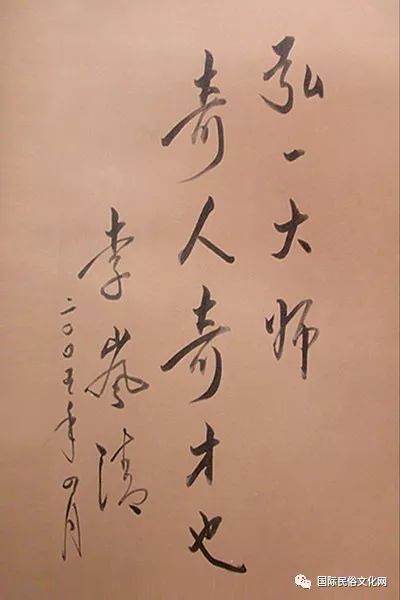 弘一大师
奇人奇才也
李岚清
二〇〇五年四月
国际民俗文化网